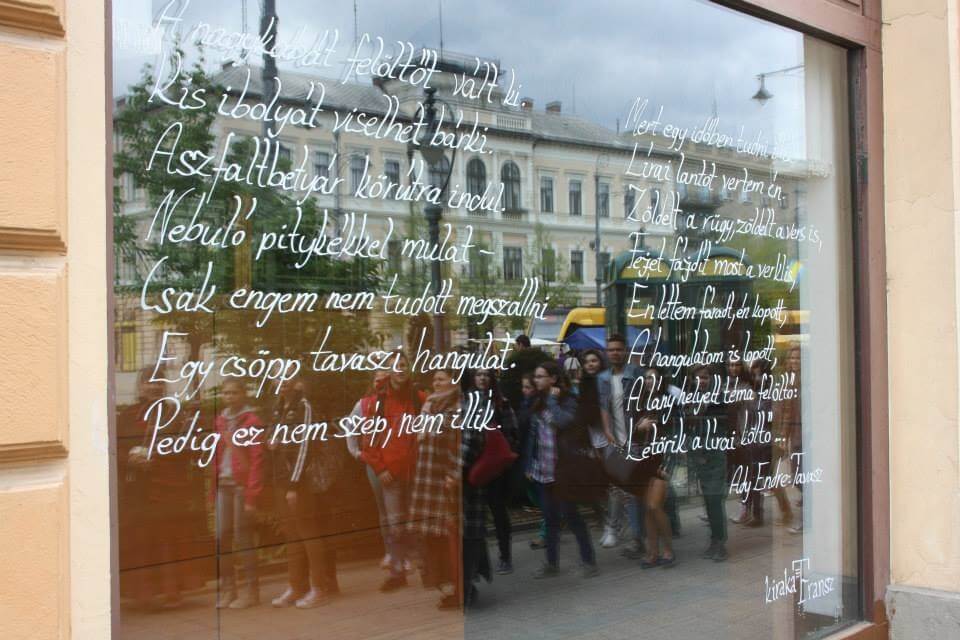 A nagykabát felöltőt vált ki.
Kis ibolyát viselhet bárki.
Aszfaltbetyár körútra indul.
Nebuló pitykékkel mulat -
Csak engem nem tudott megszállni
Egy csöpp tavaszi hangulat.
Pedig ez nem szép, nem illik.
Mert egy időben tudni
Lírai lantot vertem én,
Zöldelt a rügy, zöldelt a vers is,
Fejjet fájdít most a verklis,
Én lettem fáradt, én kopott,
A hangulatom is lopott,
A lány helyett téma felöltő:
Letörik a lírai költő...
Ady Endre: Tavasz
kirakaTransz